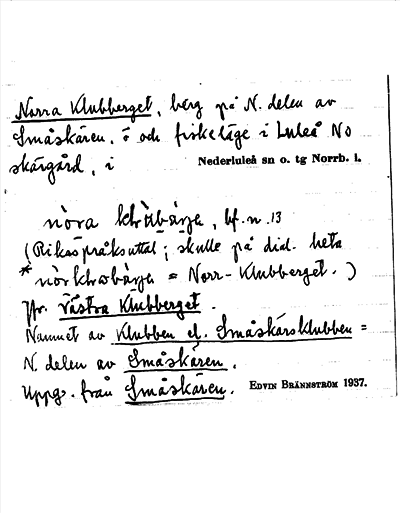 Norra Klubberget, berg på N. delen av
Småskären, ö och fiskeläge i Luleå NO
skärgård, i Nederluleå sn o. tg Norrb. l.
bf. n. 13
(Riksspråksuttal; skulle på dial. heta
= Norr-Klubberget.)
Jfr. Västra Klubberget.
Namnet av Klubben el. Småskärsklubben =
N. delen av Småskären.
Uppg. från Småskären. EDVIN BRÄNNSTRÖM 1937.